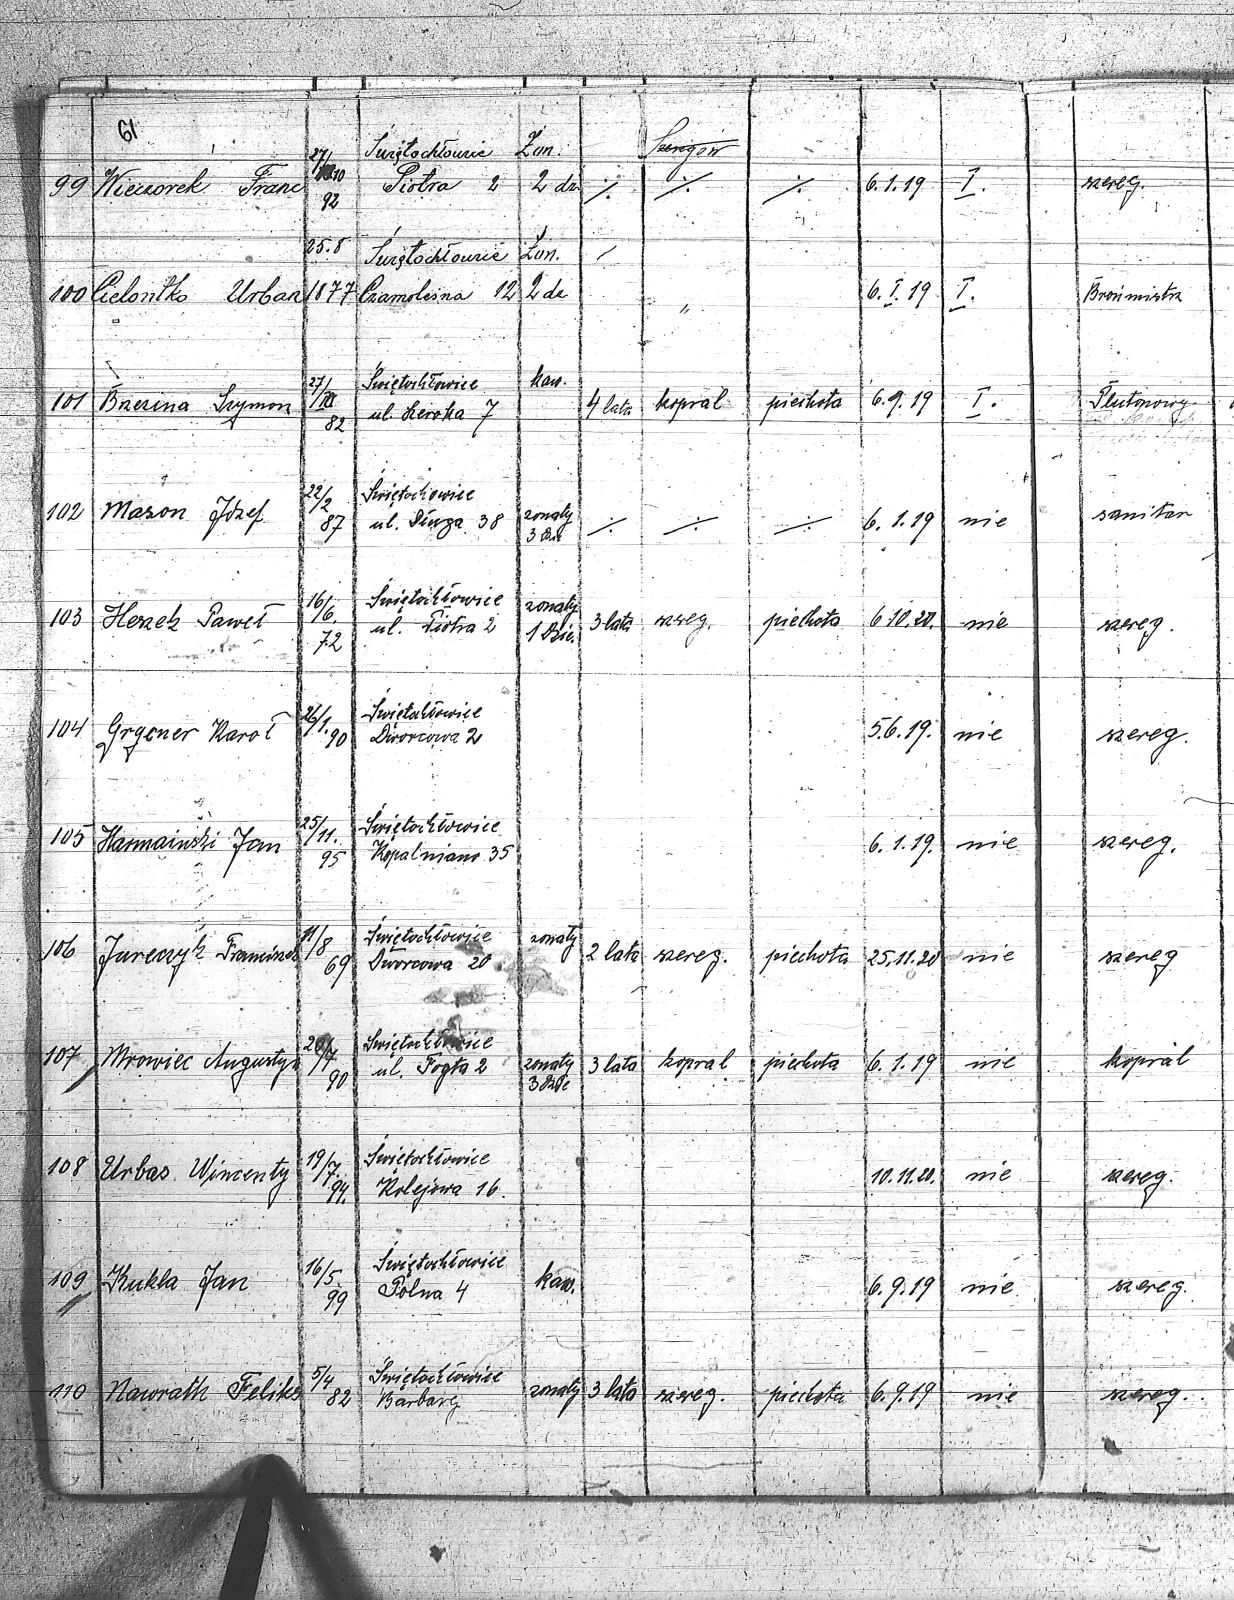 61
99 Wieczorek Franc 27/10 92 Świętochłowice Piotra 2 Żon. 2 dz ·/. ·/. ·/. 6.1.19 I. szereg.
100 Urban 25.8 1877 Świętochłowice Czarnoleśna 12 Żon. 2 dz „ 6.I.19 I. Brońmistrz
101 Brzezina Szymon 27/ 82 Świętochłowice ul. 7 kaw. 4 lata kopral piechota 6.9.19 I. Plutonowy
102 Mazon Józef 22/2 87 Świętochowice ul. Długa 38 zonaty 3 ·/. ·/. ·/. 6.1.19 nie sanitar
103 Paweł 16/6. 72 Świętochłowice ul. Piotra 2 zonaty 1 Dzie. 3 lata szereg. piechota 6.10.20. nie szereg.
104 Karol 26/1. 90 Świętochłowice Dworcowa 2 5.6.19. nie szereg.
105 Harmaiński Jan 25/11. 95 Świętochłowice 35 6.1.19. nie szereg.
106 Jurczyk 11/8 69 Świętochłowice Dworcowa 20 zonaty 2 lata szereg. piechota 25.11.20 nie szereg
107 Mrowiec Augustyn /7 90 Świętochłowice ul. 2 zonaty 3 3 lata kopral piechota 6.1.19 nie kopral
108 Urbas Wincenty 19/7. 94. Świętochłowice Kolejowa 16. 10.11.20. nie szereg.
109 Kukla Jan 16/5. 99 Świętochłowice Polna 4 kaw. 6.9.19 nie szereg.
110 Nawrath Feliks 5/4 82 Świętochłowice Barbary zonaty 3 lata szereg. piechota 6.9.19 nie szereg.